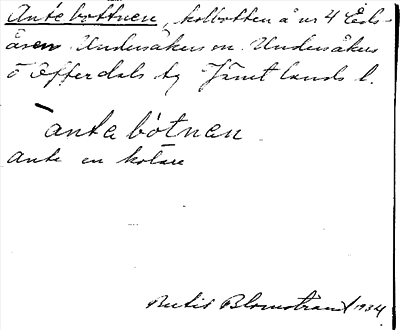 Antebottnen, kolbotten å nr 4 Eds-
åsen Undersåkers sn. Undersåkers
o Offerdals tg Jämtlands l.
àntebòtnen
Ante en kolare
Bertil Blomstrand 1934